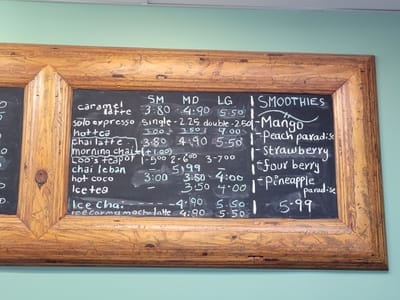 SM MD LG
caramel latte 3.80 4.90 5.50
solo espresso single - 2.25 double - 2.50
hot tea 3.00 3.50 4.00
chai latte 3.80 4.90 5.50
morning chai (+1.00)
teapot 1-5.00 2-6.00 3-7.00
chai leban - 5.99
hot coco 3.00 3.50 4.00
Ice tea - 3.50 4.00
Ice Chai 4.90 5.50
ice caramel mocha latte 4.90 5.50
SMOOTHIES
- Mango
- Peach paradise
- Strawberry
- four berry
- Pineapple
paradise
5.99